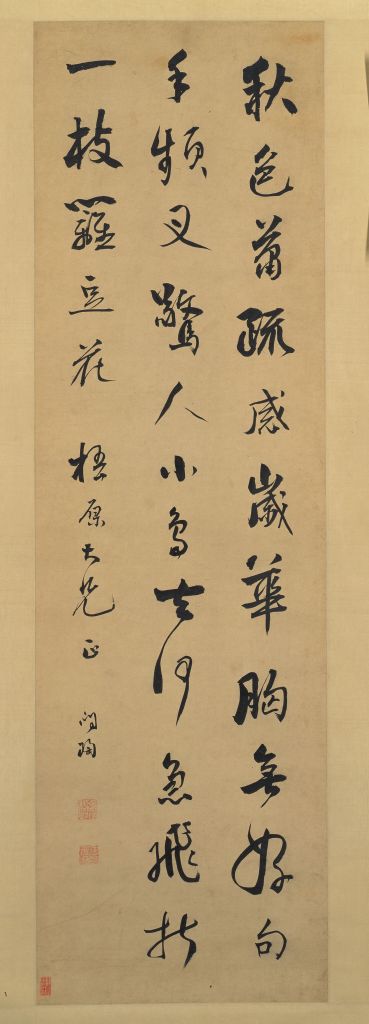 秋色蕭疏感歲華胸無好句
手頻叉驚人小鳥去何急飛折
一枝籬豆花 梧原大兄正 閔